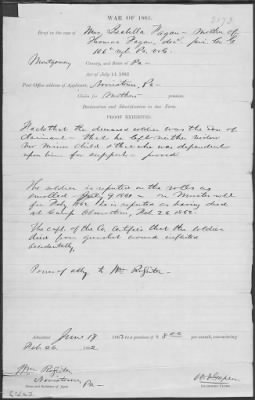 WAR OF 1861.
Proof in the case of Mrs Isabella Fagan - Mother of
Thomas Fagan, dec'd. Co. G
106" Regt Pa. Vols.
Montgomery County, and State of Pa -
Act of July 14, 1862
Post Office address of Applicant, Norristown, Pa -
Claim for Mother's pension.
Declaration and Identification in due Form.
PROOF EXHIBITED.
that the deceased soldier was the son of
claimant - that he left neither widow
nor minor child & that she was dependent
upon him for support - proved
The soldier is reported on the rolls as
enrolled 1861 - on Muster roll
for Feby 1862 he is reported as having died
at Camp Feb. 26 1862.
The capt. of the Co. certifies that the soldier
died from gunshot wound inflicted
accidentally.
Power of atty to Wm Register -
Admitted June 18 1863 to a pension of $ 8.00 per month, commencing
Feb. 26 1862
Wm Register
Norristown
Pa -